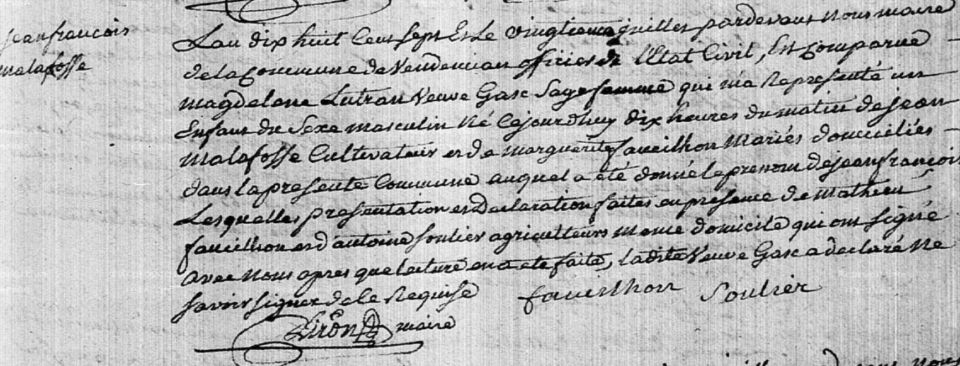 jeanfrancois
malafosse
Lan dix huit Cens sept Et Le vingtieme juillet pardevant Nous maire
de la Commune de Vendemian officier de l'Etat Civil, Est Comparue
magdelane Lutran Veuve Gasc Sage femme qui m'a Representé un
Enfant du Sexe masculin Né Cejourdhuy dix heures du matin de jean
malafosse Cultivateur et de marguerite faucilhon Mariés domiciliés
dans la presente Commune auquel a été donné le prenom de jeanfrançois
Lesquelles presentation et Declaration faites en presence de Mathieu
faucilhon et d'antoine Soulier agriculteurs meme domicile qui ont signé
avec Nous apres que lecture en a eté faite, ladite Veuve Gasc a declaré Ne
Savoir signer de ce Requise
faucilhon Soulier
maire